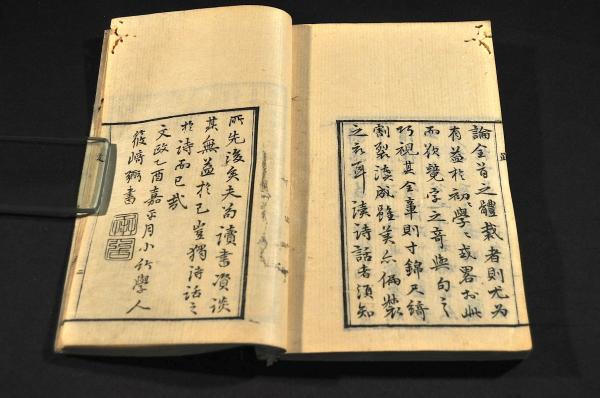 論全首之體裁者則尤為
有益於初學〻或畧於此
而覽字之奇與句之
巧視其全章則寸錦尺綺
割裂湊成雖美亦偏裝
之衣耳讀詩話者須知
所先後矣夫為讀書資談
其無益於己豈獨詩話之
於詩而已哉
文政乙酉嘉平月小竹學人
筱崎弼書